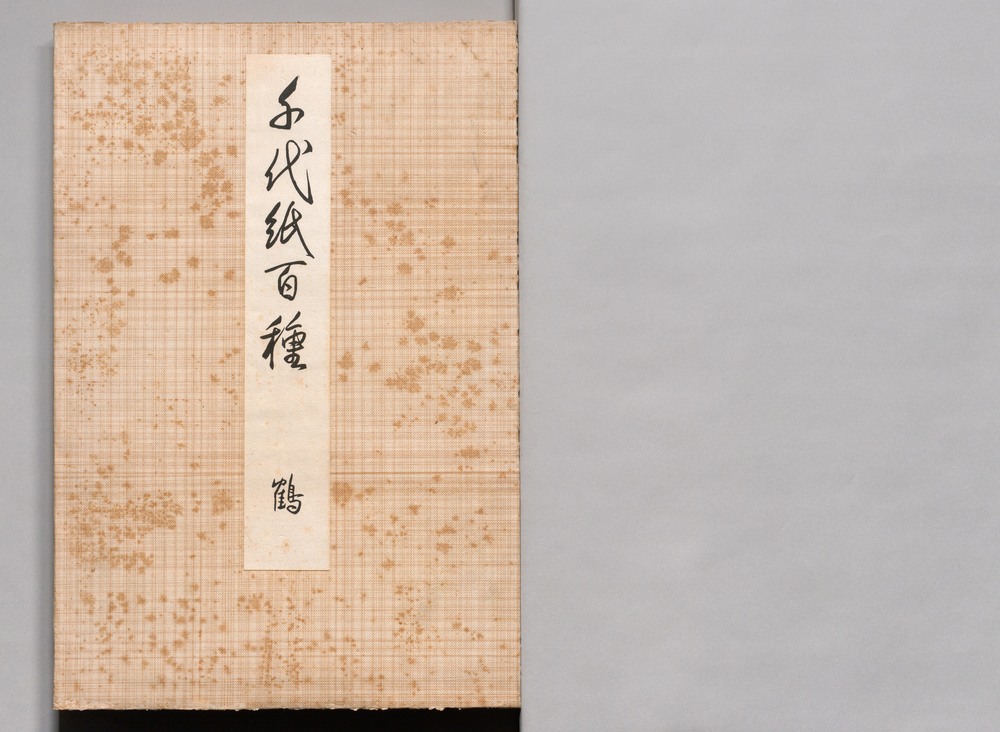 千代紙百種
鶴